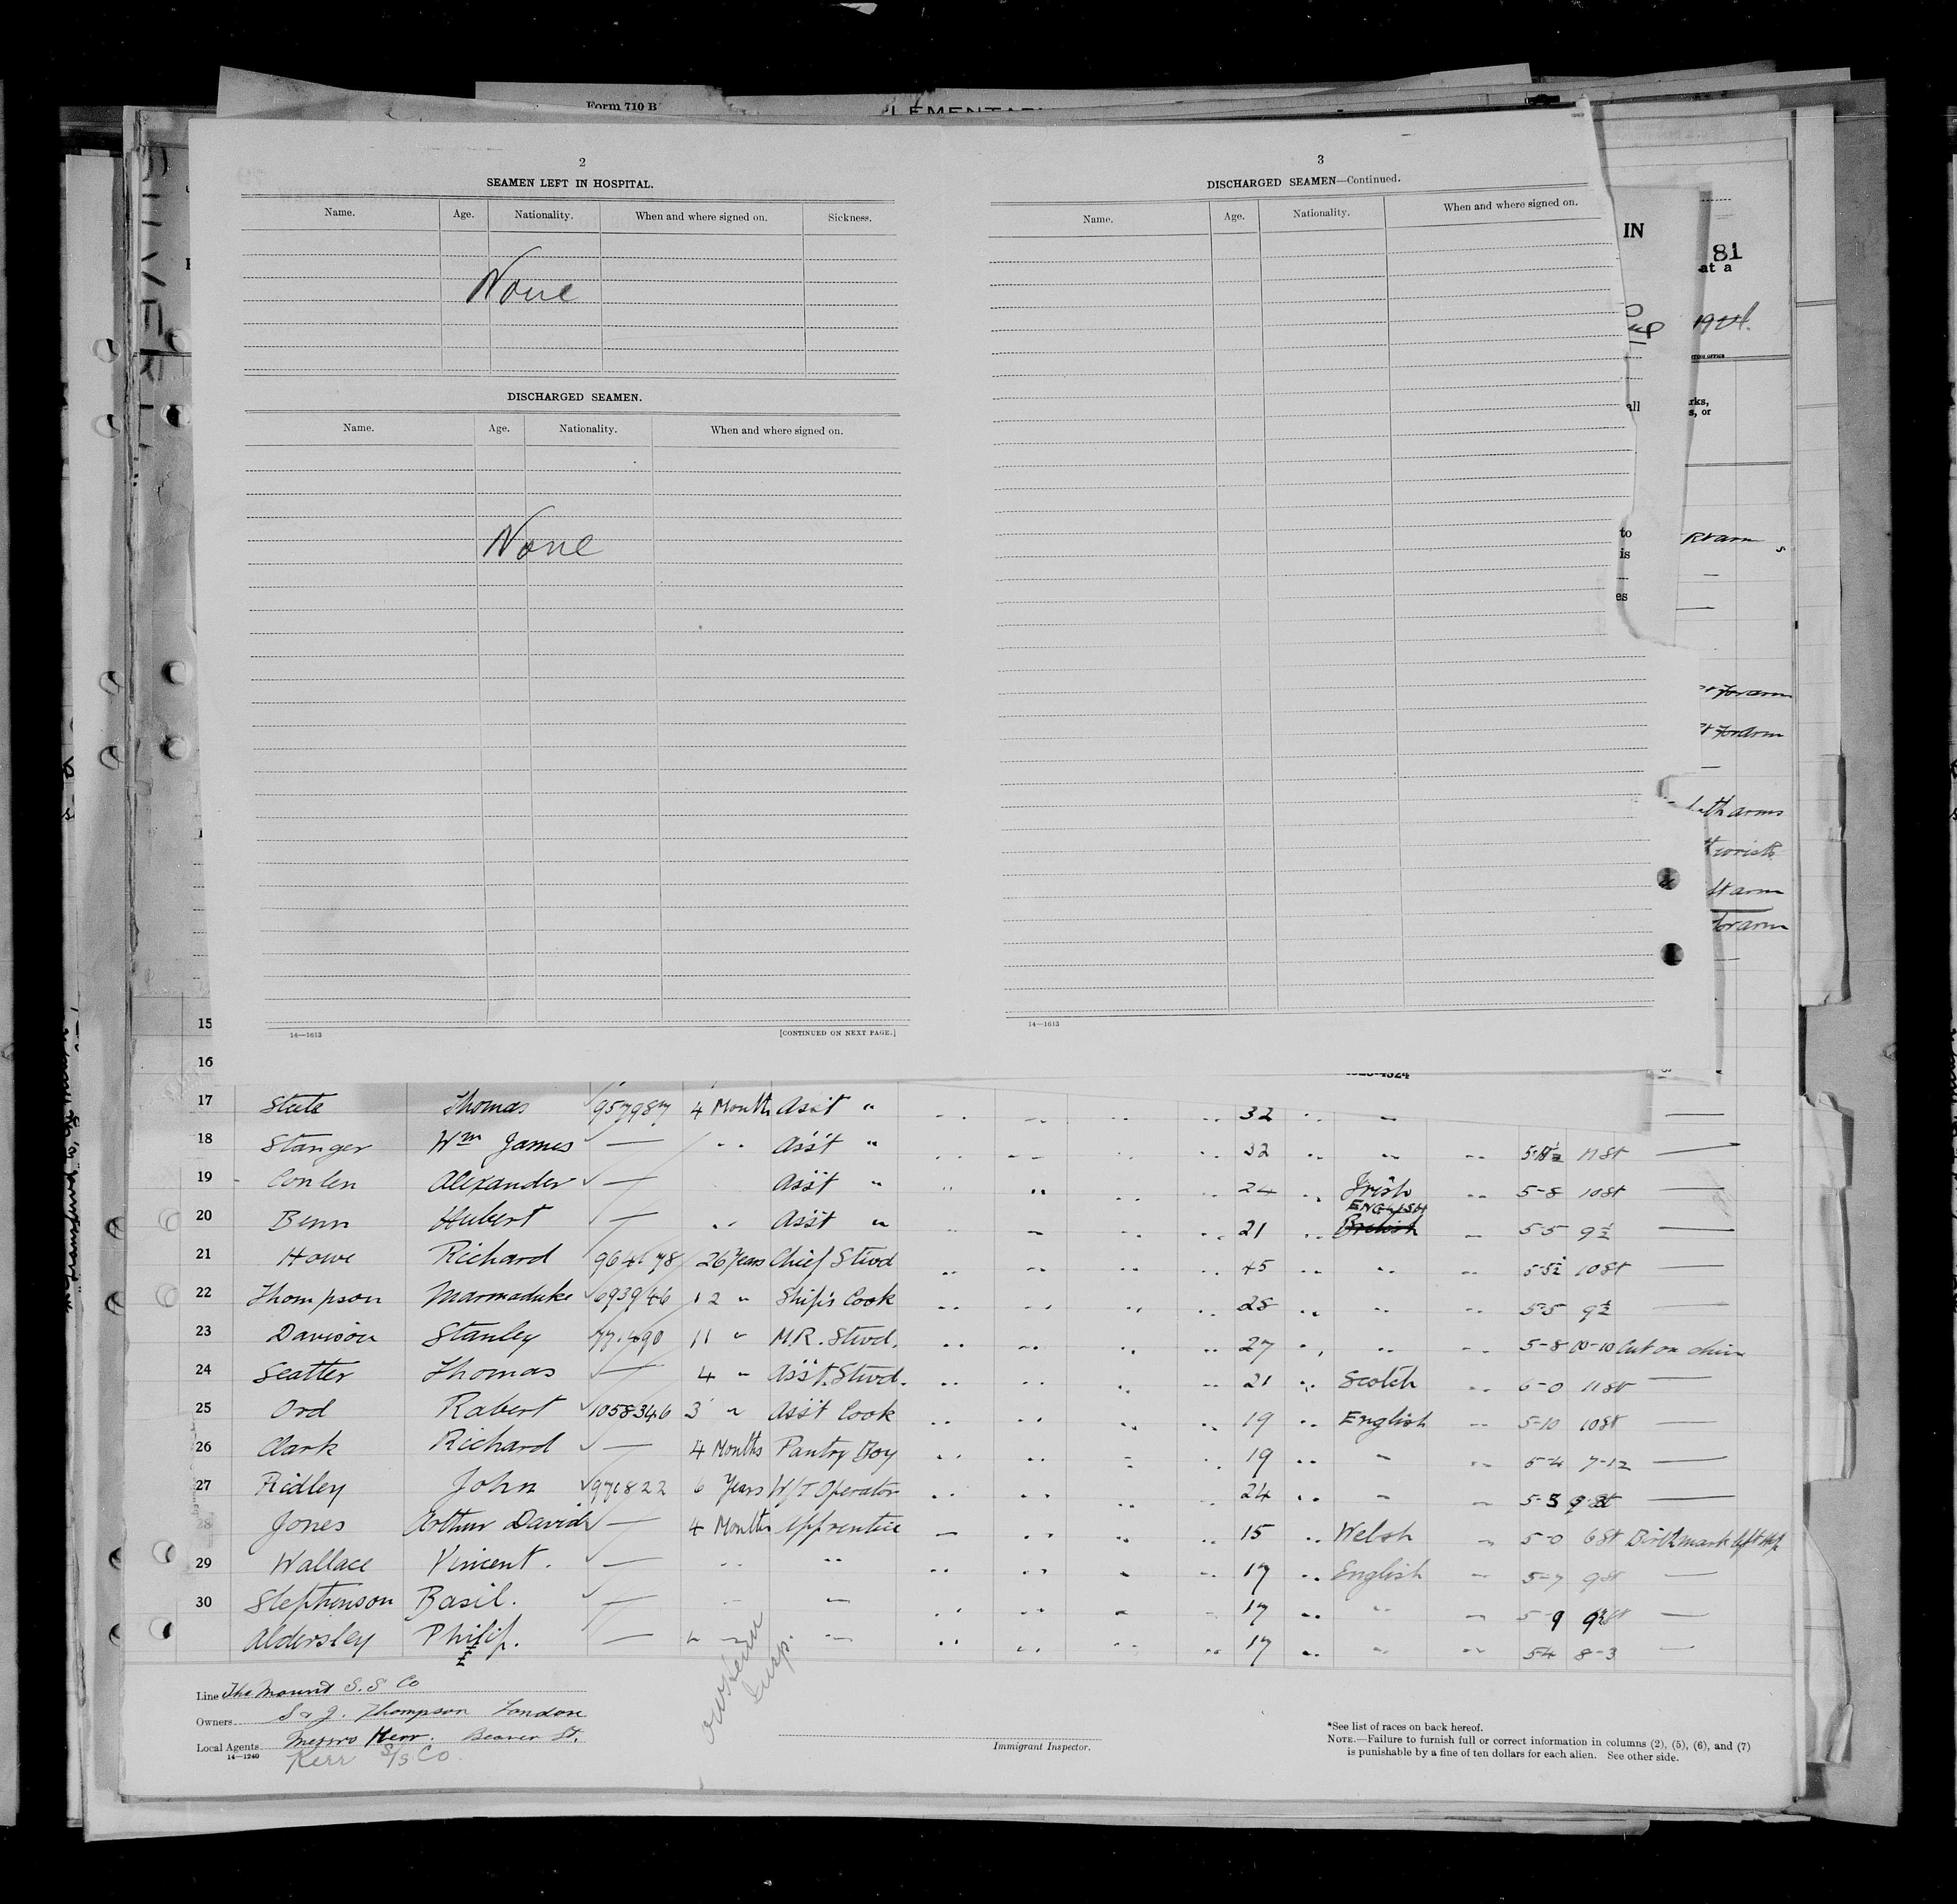 Form 710 B
2
SEAMEN LEFT IN HOSPITAL.
Name. Age. Nationality. When and where signed on. Sickness.
None
DISCHARGED SEAMEN.
Name. Age. Nationality. When and where signed on.
None
14—1613 [CONTINUED ON NEXT PAGE.]
3
DISCHARGED SEAMEN—Continued.
Name. Age. Nationality. When and where signed on.
14—1613
IN
81
at a
all
rks,
s, or
to
is
es
forarm
forarm
arms
arm
forarm
15
16
17 Thomas 957987 4 Months Ass't " .. .. .. .. 32 .. ..
18 Stanger Wm James — .. Ass't " .. .. .. .. 32 .. .. .. 11 St —
19 Conlen Alexander — Ass't " .. .. .. .. 24 .. Irish .. 5-8 10 St —
20 Benn Hubert — .. Ass't " .. .. .. .. 21 .. ENGLISH British .. 5-5 9½ —
21 Howe Richard 964178 26 Years Chief Stwd .. .. .. .. 45 .. .. .. 5-5½ 10 St —
22 Thompson Marmaduke 693946 12 " Ship's Cook .. .. .. .. 28 .. .. .. 5-5 9½ —
23 Davison Stanley 11 " M.R. Stwd. .. .. .. .. 27 .. .. .. 5-8 10-10 Cut on chin
24 Seatter Thomas — 4 " Ass't. Stwd. .. .. .. .. 21 .. Scotch .. 6-0 11 St —
25 Ord Robert 1058346 3 " Ass't Cook .. .. .. .. 19 .. English .. 5-10 10 St —
26 Clark Richard — 4 Months Pantry Boy .. .. .. .. 19 .. .. 5-4 7-12 —
27 Ridley John 971822 6 Years W/T Operator .. .. .. .. 24 .. .. .. 5-5 —
28 Jones Arthur David — 4 Months Apprentice .. .. .. .. 15 .. Welsh .. 5-0 6 St Birthmark left hip
29 Wallace Vincent. — .. .. .. .. .. .. 17 .. English .. 5-7 9 St —
30 Stephenson Basil. — .. .. .. .. .. .. 17 .. .. .. 5-9 —
Aldersley Philip. — .. .. .. .. .. .. 17 .. .. .. 5-4 8-3 —
Line The Mount S.S Co
Owners S & J. Thompson London
Local Agents Messrs Kerr. Beaver St.
14—1240 Kerr S/S Co.
Immigrant Inspector.
*See list of races on back hereof.
NOTE.—Failure to furnish full or correct information in columns (2), (5), (6), and (7)
is punishable by a fine of ten dollars for each alien. See other side.